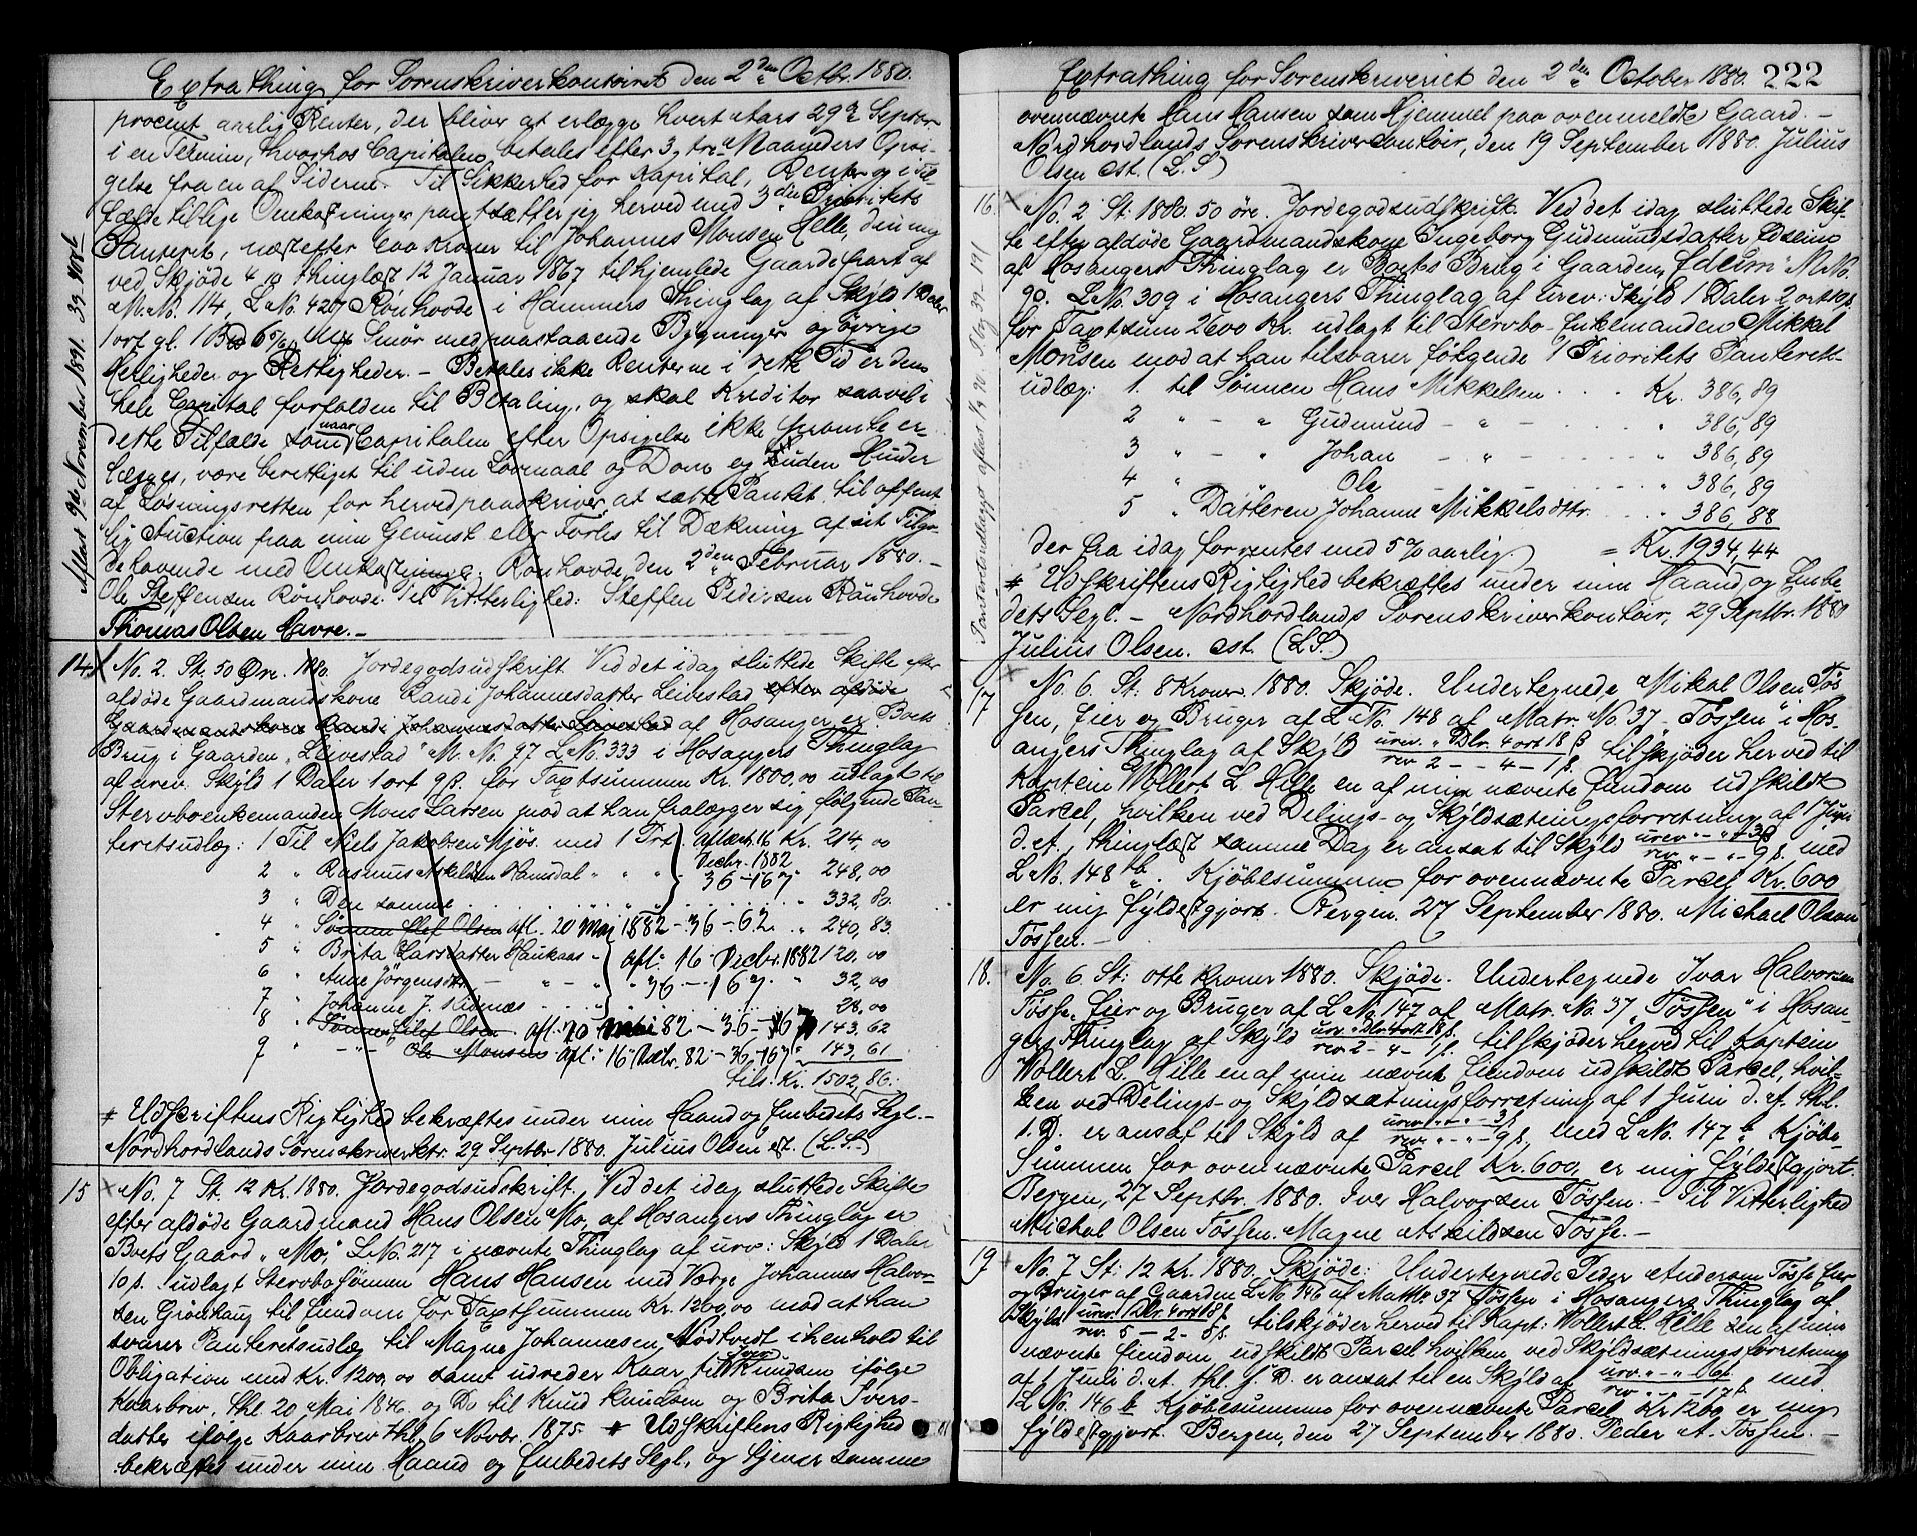 Extrathing for Sorenskriverkontoiret den 2den Octbr. 1880.
procent aarlig Renter, der bliver at erlægge hvert Aars 29de Septbr.
i en Termin, hvorhos Capitalen betales efter 3, tre Maaneders Opsi-
gelse fra en af Siderne. Til Sikkerhed for Kapital, Renter og i Til-
fælde tillige Omkostninger pantsætter jeg herved med 3die Prioritets
Panteret, næstefter 600 Kroner til Johannes Monsen Helle, den mig
ved Skjøde thinglæst 12 Januar 1867 tilhjemlede Gaardepart af
M.N. 114, L.No. 427 Rönhovde i Hammers Thinglag af Skyld 1 Daler
1 ort gl. Smør med paastaaende Bygninger og øvrige
Herligheder og Rettigheder. - Betales ikke Renterne i rette Tid er den
hele Capital forfalden til Betaling, og skal Kreditor saavel i
dette Tilfælde som naar Capitalen efter Opsigelse ikke er-
lægges, være berettiget til uden Lovmaal og Dom og uden Hinder
af Løsningsretten for hervedpaaskriver, at sætte Pantet til offent-
lig Auction paa min Gevinst eller Forlis til Dækning af sit Tilgo-
dehavende med Omkostninger. Rönhovde, den 2den Februar 1880. -
Ole Steffensen Rönhovde. Til Vitterlighed: Steffen Pedersen Rönhovde
Thomas Olsen Havre. -
Aflæst 9de November 1891. 39.
14. No. 2. St. 50 Øre. 1880. Jordegodsudskrift. Ved det idag sluttede Skifte efter
afdöde Gaardmandskone Randi Johannesdatter Leivestad efter afdöde
Gaardmandskone Randi Johannesdatter Leivestad af Hosanger, er Boets
Brug i Gaarden "Leivestad" M. No. 97 L No. 333 i Hosangers Thinglag
af urev. Skyld 1 Daler 1 ort 9 ß. for Taxtsummen Kr. 1800,00 udlagt til
Stervboenkemanden Mons Larsen mod at han fralægger sig følgende Pan-
teretsudlæg: 1 Til Niels Jakobsen Mjös. med 1 Prt. aflæst 16 Kr. 214,00
2 " Rasmus Askeldsen Ramsdal " " " Decbr. 1882 " 248,00
3 " Den samme 36-167 " 332,80.
4 " Sønnen Olef Olsen afl. 20 Mai 1882-36-62 " 240,83.
5 " Brita Larsdatter Haukaas - afl: 16 Decbr. 1882 120,00
6 " Anne Jörgensdtr. - " - 36-167. " 32,00
7 " Johanne J. Eidsnæs " 28,00
8 " Sønnen Olef Olsen afl. 20 Mai 82-36- 143,62
9 " -"- Ole Monsen afl: 16 Decbr. 82-36-167 143,61
tils. Kr. 1502,86.
# Udskriftens Rigtighed bekræftes under min Haand og Embedets Segl. -
Nordhordlands Sorenskriverktr. 29 Septbr 1880. Julius Olsen cst. (L.S.)
15 No. 7 St. 12 Kr. 1880. Jordegodsudskrift. Ved det idag sluttede Skifte
efter afdöde Gaardmand Hans Olsen Mo, af Hosangers Thinglag er
Boets Gaard "Mo," L No. 217 i nævnte Thinglag af urv: Skyld 1 Daler
10 ß. udlagt Stervbosønnen Hans Hansen med Værge Johannes Halvor-
sen Grönhaug til Eiendom for Taxtsummen Kr. 1200,00 mod at han
svarer Panteretsudlæg til Magne Johannesen Nödtvedt i henhold til
Obligation med Kr. 1200,00 samt udreder Kaar til Iver Knudsen ifølge
Kaarbrev, thl. 20 Mai 1846. og Do til Knud Knudsen og Brita Ivers-
datter ifølge Kaarbrev thl. 6 Novbr. 1875. # Udskriftens Rigtighed
bekræftes under min Haand og Embedets Segl, og tjener samme
Extrathing for Sorenskriveriet den 2den October 1880. 222
ovennævnte Hans Hansen som Hjemmel paa ovenmeldte Gaard. -
Nordhordlands Sorenskrivercontoir, den 19 September 1880. Julius
Olsen cst. (L.S)
16. No. 2 St: 1880. 50 öre. Jordegodsudskrift. Ved det idag sluttede Skif-
te efter afdöde Gaardmandskone Ingeborg Gudmundsdatter Edseim
af Hosangers Thinglag er Boets Brug i Gaarden "Edeim" M.No.
90. L No. 309 i Hosangers Thinglag af urev: Skyld 1 Daler 2 ort 10 ß.
for Taxtsum 2600 Kr. udlagt til Stervbo-Enkemanden Mikkel
Monsen mod at han tilsvarer følgende 1 Prioritets Panterets-
udlæg: 1. til Sønnen Hans Mikkelsen Kr. 386,89
2 " - " Gudmund - " - " 386,89
3 " - " Johan - " - " 386,89
4 " Ole - " 386,89
5 " Datteren Johanne Mikkelsdttr. " 386,88
der fra idag forrentes med 5 % aarlig = Kr. 1934,44
# Udskriftens Rigtighed bekræftes under min Haand og Embe-
dets Segl. - Nordhordlands Sorenskriverkontoir, 29 Septbr. 1880
Julius Olsen. cst. (L.S.)
Panteretsudlægget aflæst 39-191
17 No. 6. St: 8 Kroner. 1880. Skjöde. Undertegnede Mikal Olsen Tös-
sen, Eier og Bruger af L No. 148 af Matr. No. 37 "Tössen" i Hos-
angers Thinglag af Skyld urev. " Dlr. 4 ort 18 ß rev 2 - 4 - 1 ß. tilskjöder herved til
Kaptein Wollert L Hille en af min nævnte Eiendom udskildt
Parcel, hvilken ved Delings- og Skyldsætningsforretning af 1 Juni
d.A., thinglæst samme Dag er ansat til Skyld urev " - " - 3 ß rev " - " - 9 ß. med
L No. 148 b. Kjöbesummen for ovennævnte Parcel Kr. 600
er mig fyldestgjort. Bergen. 27 September 1880. Michael Olsen
Tössen. -
18. No. 6. St: otte Kroner 1880. Skjöde. Undertegnede Ivar Halvorsen
Tösse. Eier og Bruger af L No. 147 af Matr. No. 37 "Tössen" i Hosan-
gers Thinglag af Skyld urv. " Dlr. 4 ort 18 ß. rev 2 - 4 - 1 ß. tilskjöder herved til Kaptein
Wollert L. Hille en af min nævnte Eiendom udskildt Parcel, hvil-
ken ved Delings- og Skyldsætningsforretning af 1 Juni d.A. thl.
s. D. er ansat til Skyld af urev " - " - 3 ß. rev " - " - 9 ß. med L No. 147 b Kjöbe-
Summen for ovennævnte Parcel Kr. 600, er mig fyldestgjort.
Bergen, 27 Septbr. 1880. Iver Halvorsen Tössen. Til Vitterlighed
Michal Olsen Tössen. Magne Askildsen Tösse. -
19 No. 7 St: 12 Kr. 1880. Skjöde: Undertegnede Peder Anderssen Tösse Eier
og Bruger af Gaarden L No 146 af Mattr. 37 Tössen i Hosangers Thinglag af
Skyld urev. 1 Dlr. 4 ort 18 ß rev. 5 - 2 - 5 ß. tilskjöder herved til Kapt: Wollert L. Hille en af min
nævnte Eiendom udskildt Parcel hvilken ved Skyldsætningsforretning
af 1 Juni d.A. thl. s. D. er ansat til en Skyld af urv. " - " 6 ß. rev " - " - 17 ß. med
L No. 146 b Kjöbesummen for ovennævnte Parcel Kr 1200 er mig
fyldestgjort. Bergen, den 27 September 1880. Peder A. Tössen. -